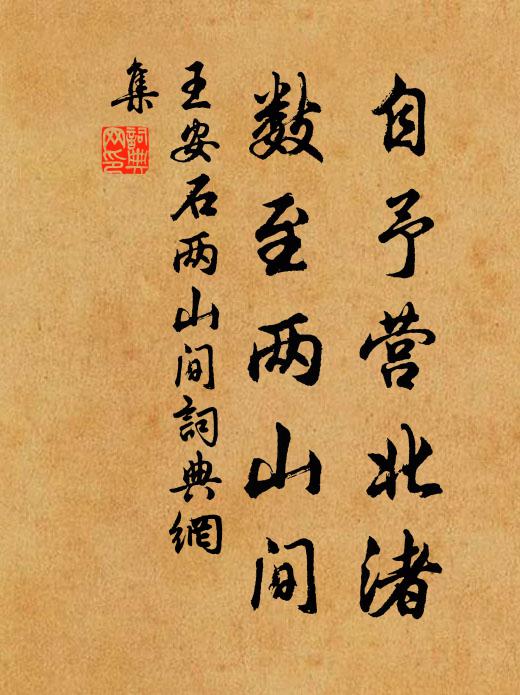 自予营北渚
数至两山间
王安石两山间詞典網
集
詞典網印